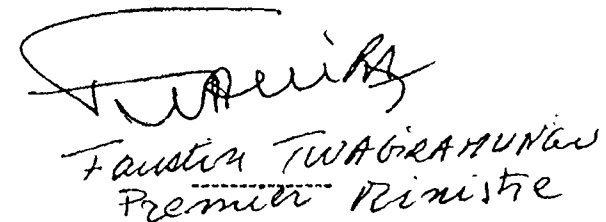 Twagira
Faustin TWAGIRAMUNGU
Premier Ministre